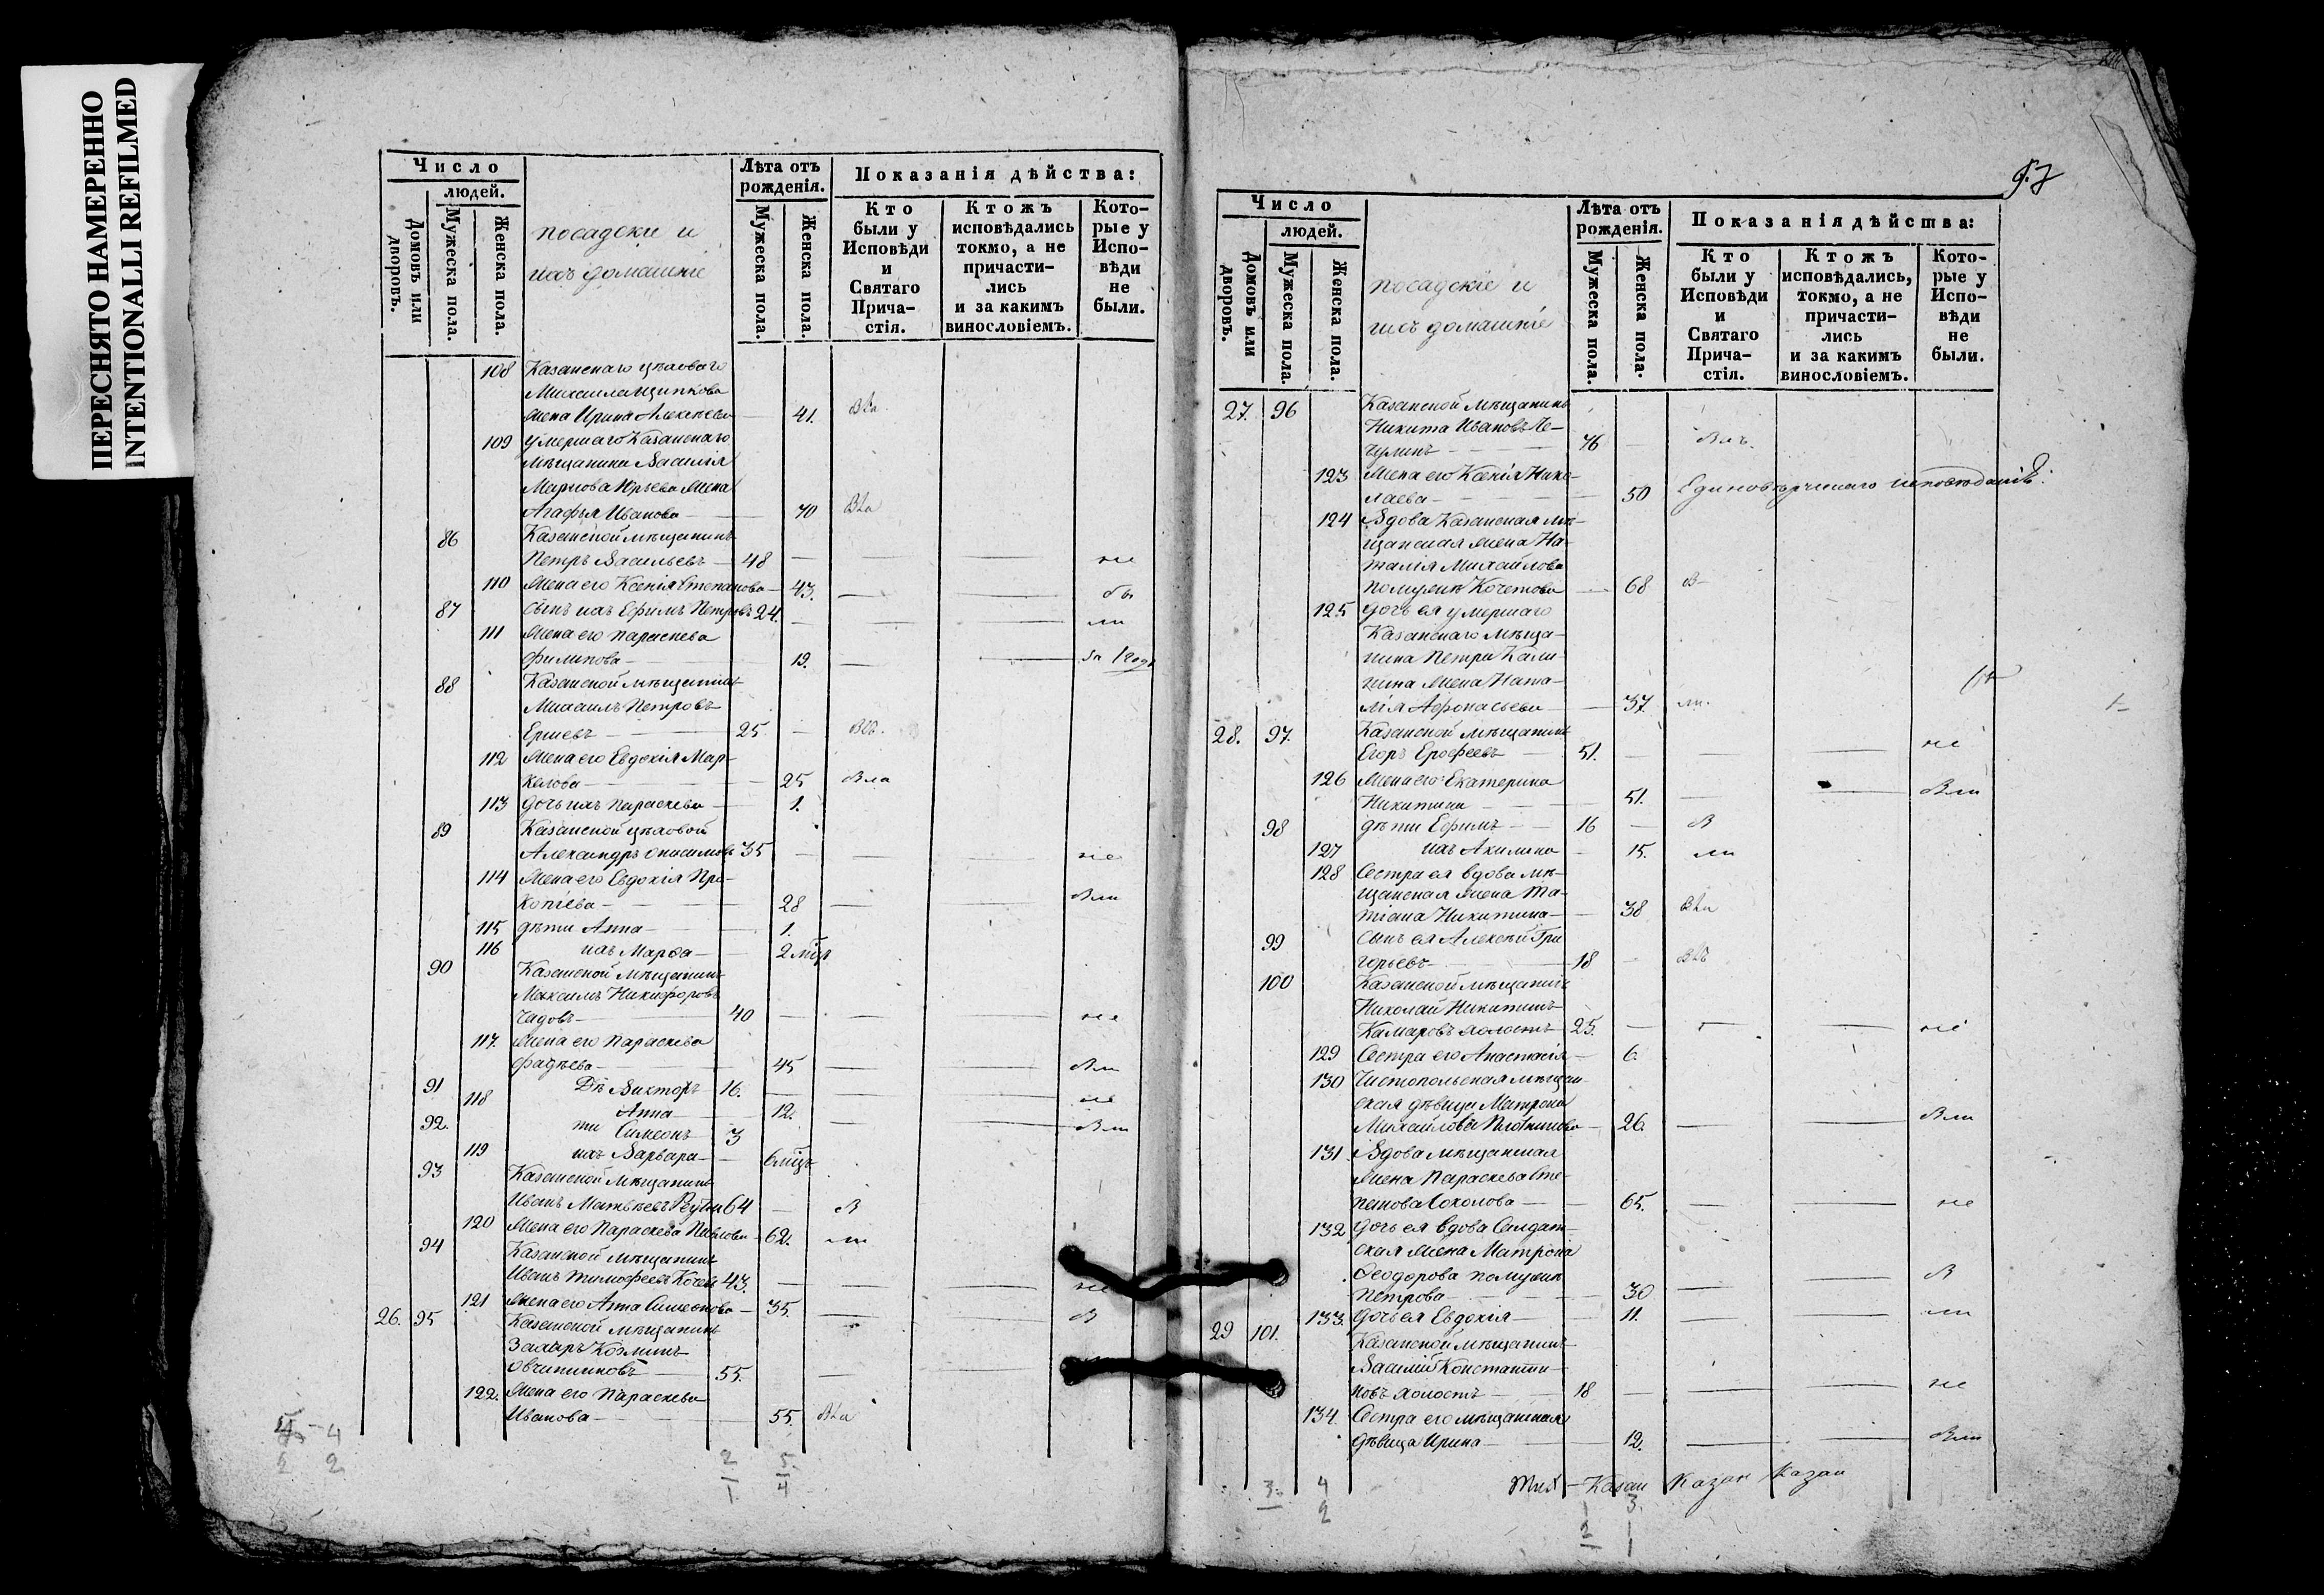 ПЕРЕСНЯТО НАМЕРЕННО
INTENTIONALLI REFILMED
Число
людей.
Домовъ или дворовъ.
Мужеска пола.
Женска пола.
посадскіе и
ихъ домашніе
Лѣта отъ рожденія.
Мужеска пола.
Женска пола.
Показанія дѣйства:
Кто были у Исповѣди и Святаго Прича-стія.
Ктожъ исповѣдались токмо, а не причасти-лись и за какимъ винословіемъ.
Кото-рые у Испо-вѣди не были.
108 Казанскаго цѣховаго
Михаила Щипкова
жена Ирина Алексѣева — 41.
109 умершаго Казанскаго
мѣщанина Василія
Юрьева жена
Агафья Иванова — 70
86 Казанской мѣщанинъ
Петръ Васильевъ — 48 — не
110 жена его Ксенія Степанова — 43. — бы
87 сынъ ихъ Ефимъ Петровъ 24. — ли
111 жена его Параскева
Филипова — 19.
88 Казанской мѣщанинъ
Михаилъ Петровъ
Ершевъ — 25 —
112 жена его Евдокія Мар-
келова — 25
113 дочь ихъ Параскева — 1.
89 Казанской цѣховой
Александръ Онисимовъ 35 — не
114 жена его Евдокія Про-
копіева — 28 — были
115 дѣти Анна — 1.
116 ихъ Марѳа — 2 мѣц
90 Казанской мѣщанинъ
Максимъ Никифоровъ
Чадовъ — 40 — не
117. жена его Параскева
Фадѣева — 45 — были
91 Дѣ Викторъ 16. — не
118 Анна — 12.
92. ти Симеонъ 3 — были
119 ихъ Варвара — 6 мѣцъ
93 Казанской мѣщанинъ
Иванъ Матвѣевъ 64 — б
120 жена его Параскева Павлова — 62. ли
94 Казанской мѣщанинъ
Иванъ Тимофеевъ 43. — не
121 жена его Анна Симеонова — 35. — б
26. 95 Казанской мѣщанинъ
Захаръ Козминъ
Овчинниковъ — 55. —
122. жена его Параскева
Иванова — 55
97
Число
людей.
Домовъ или дворовъ.
Мужеска пола.
Женска пола.
посадскіе и
ихъ домашніе
Лѣта отъ рожденія.
Мужеска пола.
Женска пола.
Показанія дѣйства:
Кто были у Исповѣди и Святаго Прича-стія.
Ктожъ исповѣдались, токмо, а не причасти-лись и за какимъ винословіемъ.
Кото-рые у Испо-вѣди не были.
27. 96 Казанской мѣщанинъ
Никита Ивановъ Че-
чулинъ — 76 —
123 жена его Ксенія Нико-
лаева — 50 Единовѣрческаго исповѣданія.
124 Вдова Казанская мѣ-
щанская жена На-
талія Михайлова
по мужѣ Кочетова — 68 б
125 дочь ея умершаго
Казанскаго мѣща-
нина Петра Кали-
нина жена Ната-
лія Афонасьева — 37. ли.
28. 97. Казанской мѣщанинъ
Егоръ Ерофеевъ — 51. — не
126 жена его Екатерина
Никитина — 51. — были
98 дѣти Ефимъ — 16 — б
127 ихъ Акилина — 15. ли
128 Сестра ея вдова мѣ-
щанская жена Та-
тіана Никитина — 38
99 сынъ ея Алексѣй Гри
горьевъ — 18 —
100 Казанской мѣщанинъ
Николай Никитинъ
Камаровъ холостъ 25. — не
129 Сестра его Анастасія — 6.
130 Чистопольская мѣщан-
ская дѣвица Матрона
Михайлова Плотникова — 26. — были
131 Вдова мѣщанская
жена Параскева Сте-
панова Соколова — 65. — не
132 дочь ея вдова Солдат-
ская жена Матрона
Ѳеодорова по мужѣ
Петрова — 30 — б
133. дочь ея Евдокія — 11. — ли
29 101. Казанской мѣщанинъ
Василій Константи-
новъ холостъ — 18 — не
134. Сестра его мѣщанская
дѣвица Ирина — 12. — были
Казан Казан Казан